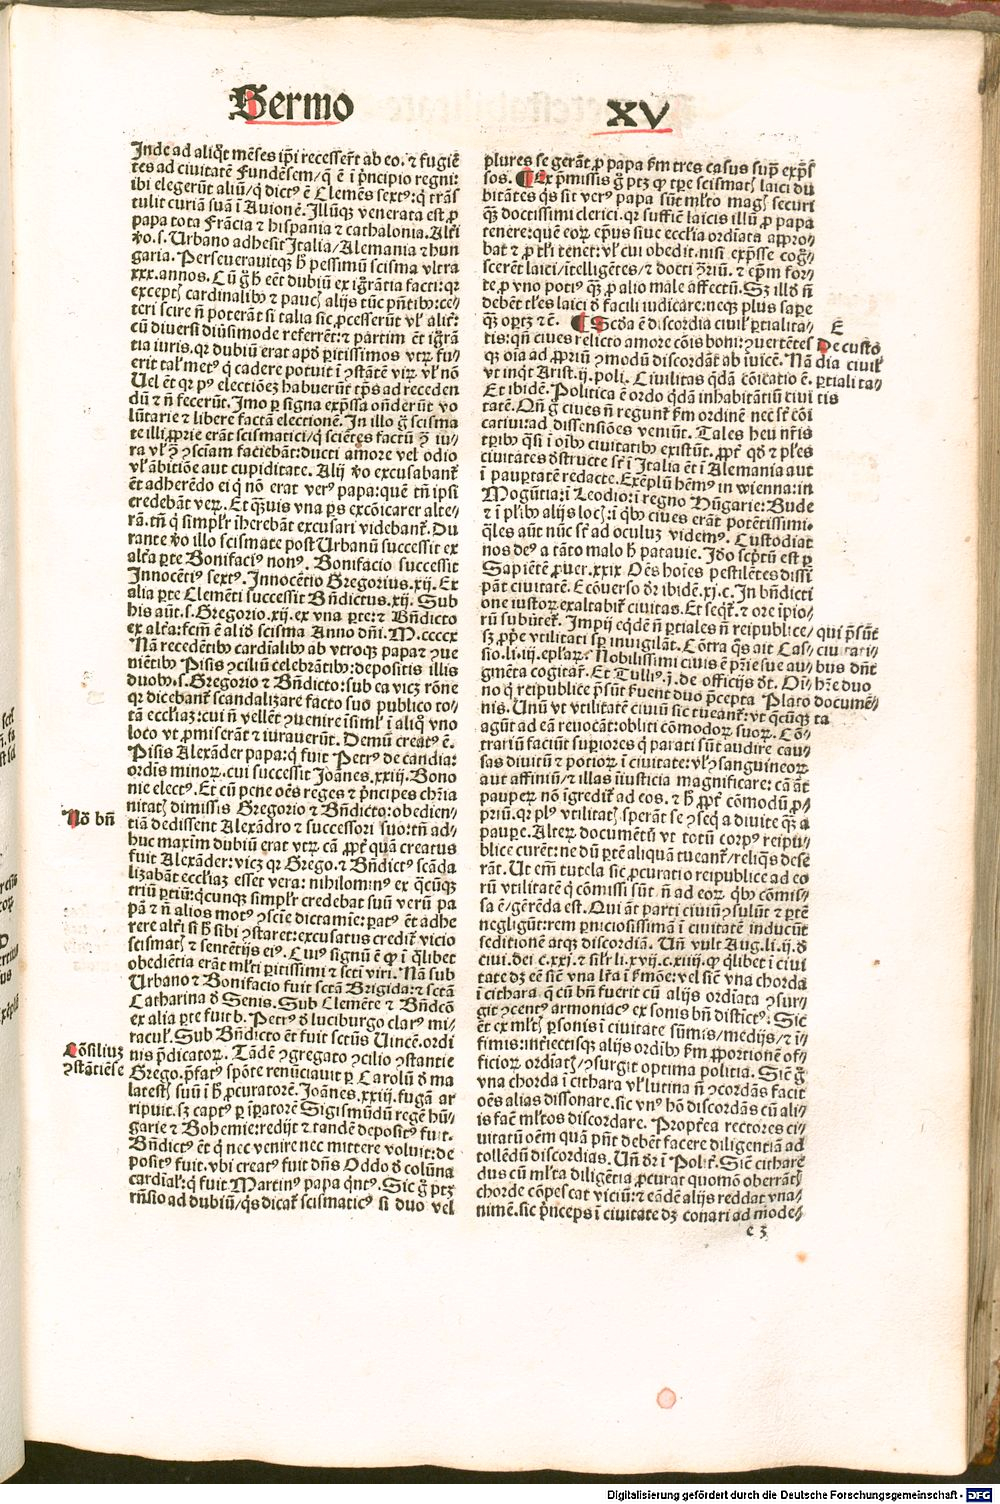 Sermo
XV
Inde ad aliqͦt mēses ip̄i recesserūt ab eo. ⁊ fugiē
tes ad ciuitatē Fundēsem/q̄ ē ī p̄ncipio regni:
ibi elegerūt aliū/q̄ dictꝰ ē Clemēs sextꝰ: q̄ trās
tulit curiā suā ī Auionē. Illūqꝫ venerata est ꝓ
papa tota Frācia ⁊ hispania ⁊ cathalonia. Alt̄i
ꝟo. s. Urbano adhesit Italia/Alemania ⁊ hun
garia. Perseuerauitqꝫ h̄ pessimū scisma vltra
xxx. annos. Cū g̊ h̄ eēt dubiū ex igr̄ātia facti: qꝛ
exceptꝭ cardinalibꝰ ⁊ paucꝭ alijs tūc pn̄tibꝰ: ce⸗
teri scire nō poterāt si talia sic ꝓcesserūt vl̓ alit̄:
cū diuersi diuīsimode referrēt: ⁊ partim ēt igr̄ā
tia iuris. qꝛ dubiū erat apd̓ ꝑitissimos vtꝝ fu⸗
erit tal̓ metꝰ q̄ cadere potuit ī ꝯstātē viꝝ vl̓ nō
Uel ēt qꝛ pꝰ electiōeꝫ habuerūt tp̄s ad receden
dū ⁊ nō fecerūt. Imo ꝑ signa exp̄ssa ondērūt vo
lūtarie ⁊ libere factā electionē. In illo g̊ scisma
te illi ꝓprie erāt scismatici/q̄ sciētes factū ꝯ̄ iu⸗
ra vl̓ ꝯ̄ ꝯsciam faciebāt: ducti amore vel odio
vl̓ ābitiōe aut cupiditate. Alij ꝟo excusabant̄
ēt adherēdo ei q̄ nō erat verꝰ papa: quē tn̄ ipsi
credebāt veꝝ. Et qꝫuis vna ꝑs excōicarer alte⸗
rā. tn̄ q̄ simpl̓r īherebāt excusari videbant̄. Du
rante ꝟo illo scismate post Urbanū successit ex
alt̄a ꝑte Bonifaciꝰ nonꝰ. Bonifacio successit
Innocētiꝰ sextꝰ. Innocētio Gregorius. xij. Ex
alia ꝑte Clemēti successit Bn̄dictus. xij. Sub
his aūt. s. Gregorio. xij. ex vna ꝑte: ⁊ Bn̄dicto
ex alt̄a: fcm̄ ē aliō scisma Anno dn̄i. M. ccccx
Nā recedētibꝰ cardīalibꝰ ab vtroqꝫ papa ⁊ ꝯue
niētibꝰ Pisis ꝯciliū celebrātibꝰ: depositis illis
duobꝰ. s. Gregorio ⁊ Bn̄dicto: sub ea vicꝫ rōne
qꝛ dicebant̄ scandalizare facto suo publico to⸗
tā eccl̓iaꝫ: cui nō vellēt ꝯuenire īsiml̓ ī aliq̄ vno
loco vt ꝓmiserāt ⁊ iurauerūt. Demū creatꝰ ē.
Pisis Alexāder papa: q̄ fuit Petrꝰ de candia:
ordīs minoꝝ. cui successit Joānes. xxiij. Bono
nie electꝰ. Et cū pene oēs reges ⁊ p̄ncipes chr̄ia
nitatꝭ dimissis Gregorio ⁊ Bn̄dicto: obedien⸗
tiā dedissent Alexādro ⁊ successori suo: tn̄ ad⸗
huc maxim̄ dubiū erat vtꝝ cā ꝓpt̄ quā creatus
fuit Alexāder: vicꝫ qꝛ Grego. ⁊ Bn̄dictꝰ scāda
lizabāt eccl̓iaꝫ esset vera: nihilominꝰ ex q̄cūqꝫ
triū ꝑtiū: q̄cunqꝫ simpl̓r credebat suū verū pa
pā ⁊ nō alios motꝰ ꝯscīe dictamīe: ꝑatꝰ ēt adhe
rere alt̄i si h̄ sibi ꝯstaret: excusatus credit̄ vicio
scismatꝭ ⁊ sentētijs eiꝰ. Cuiꝰ signū ē qꝛ ī q̄libet
obediētia erāt ml̓ti ꝑitissimi ⁊ scti viri. Nā sub
Urbano ⁊ Bonifacio fuit sctā Brigida: ⁊ sctā
Catharina d̓ Senis. Sub Clemēte ⁊ Bn̄dcō
ex alia ꝑte fuit b. Petrꝰ d̓ luciburgo clarꝰ mi⸗
racul̓. Sub Bn̄dicto ēt fuit sctūs Uincē. ordi
nis p̄dicatoꝝ. Tādē ꝯgregato ꝯcilio ꝯstantie
Grego. p̄fatꝰ spōte renūciauit ꝑ Carolū d̓ ma
latestꝭ suū ī h̄ ꝓcuratorē. Joānes. xxiij. fugā ar
ripuit. sꝫ captꝰ ꝑ īꝑatorē Sigismūdū regē hū⸗
garie ⁊ Bohemie: redijt ⁊ tandē depositꝰ fuit.
Bn̄dictꝰ ēt q̄ nec venire nec mittere voluit: de
positꝰ fuit. vbi creatꝰ fuit dn̄s Oddo d̓ colūna
cardīal̓: q̄ fuit Martinꝰ papa qn̄tꝰ. Sic g̊ ptꝫ
rn̄sio ad dubiū/q̄s dicat̄ scismaticꝰ si duo vel
Nō bn̄
Cōsiliuꝫ
ꝯstātiēse
plures se gerāt ꝓ papa fm̄ tres casus sup̄ exp̄s
sos. ¶ Ex p̄missis g̊ ptꝫ ꝙ tp̄e scismatꝭ laici du
bitātes q̄s sit verꝰ papa sūt ml̓to magꝭ securi
qꝫ doctissimi clerici. qꝛ suffic̄ laicis illū ꝓ papa
tenere: quē eoꝝ ep̄us siue eccl̓ia ordīata appro⸗
bat ⁊ ꝓ tl̓i tenet: vl̓ cui obedit. nisi exp̄sse cog̊⸗
scerēt laici/ītelligētes/⁊ docti ꝯ̄riū. ⁊ ep̄m for⸗
te ꝓ vno potiꝰ qꝫ ꝓ alio male affectū. Sꝫ illd̓ nō
debēt tl̓es laici d̓ facili iudicare: neqꝫ plus saꝑe
qꝫ oꝑtꝫ ⁊ c̄. ¶ Scd̓a ē discordia ciuil̓ ꝑtialita⸗
tis: qn̄ ciues relicto amore cōis boni: ꝯuertētes
qꝫ oīa ad ꝓpriū ꝯmodū discordāt ab īuicē. Nā
vt inqͭ Arist. ij. poli. Ciuilitas q̄dā cōicatio ē.
Et ibidē. Politica ē ordo q̄dā inhabitātiū ciui
tatē. Qn̄ g̊ ciues nō regunt̄ fm̄ ordinē nec st̄ cōi
catiui: ad dissensiōes veniūt. Tales heu nr̄is
tꝑibꝰ q̄si ī oībꝰ ciuitatibꝰ existūt. ꝓpt̄ qd̓ ⁊ pl̓es
ciuitates d̓structe st̄ ī Italia ēt ī Alemania aut
ī pauꝑtatē redacte. Exēplū hēmꝰ in wienna: in
Mogūtia: ī Leodio: ī regno Hūgarie: Bude
⁊ ī pl̓ibꝰ alijs locꝭ: ī qͥbꝰ ciues erāt potētissimi.
q̄les aūt nūc st̄ ad oculuꝫ videmꝰ. Custodiat
nos deꝰ a tāto malo h̄ patauie. Jō scp̄tū est ꝑ
Sapiētē ꝓuer. xxix. Oēs hoīes pestilētes dissi⸗
pāt ciuitatē. Ecōuerso dr̄ ibidē. xj. c. In bn̄dicti
one iustoꝝ exaltabit̄ ciuitas. Et seqt̄. ⁊ ore īpio⸗
rū subūtet̄. Impij eqdē nō ꝑtiales nō reipublice/
sꝫ ꝓp̄e vtilitati sꝑ inuigilāt. Cōtra q̄s ait Cas⸗
sio. li. iij. ep̄laꝝ. Nobilissimi ciuis ē p̄rie sue au⸗
gmēta cogitat̄. Et Tulliꝰ. j. de officijs d̓t. Oī⸗
no q̄ reipublice p̄sūt ſeruent duo p̄cepta Plato
nis. Unū vt vtilitatē ciuiū sic tueant̄: vt q̄cūqꝫ
agūt ad eā reuocāt: obliti cōmodoꝝ suoꝝ. Cō⸗
trariū faciūt suꝑiores q̄ parati sūt audire cau⸗
sas diuitū ⁊ potioꝝ ī ciuitate: vl̓ ꝯsanguineoꝝ
aut affiniū/⁊ illas iniusticia magnificare: cā āt
pauꝑuꝝ nō īgredit̄ ad eos. ⁊ h̄ ꝓpt̄ cōmodū ꝓ⸗
priū. qꝛ plꝰ vtilitatꝭ sperāt se ꝯseq̄ a diuite qꝫ a
pauꝑe. Alteꝝ documētū vt totū corpꝰ reipu⸗
blice curēt: ne dū ꝑtē aliquā tueant̄/reliq̄s dese
rāt. Ut em̄ tutela sic ꝓcuratio reipublice ad eo
rū vtilitatē q̄ cōmissi sūt nō ad eoꝝ qͥbꝰ cōmis⸗
sa ē/gerēda est. Qui āt parti ciuiū ꝯsulūt ⁊ ꝑtē
negligūt: rem ꝑniciosissimā ī ciuitatē inducūt
seditionē atqꝫ discordiā. Un̄ vult Aug. li. ij. d̓
ciui. dei c. xxi. ⁊ sil̓r li. xvij. c. xiiij. ꝙ q̄libet ī ciui
tate dꝫ eē siē vna lr̄a ī ſermōe: vel siē vna chorda
ī cithara q̄ cū bn̄ fuerit cū alijs ordīata ꝯsur⸗
git ꝯcentꝰ armoniacꝰ ex sonis bn̄ distīctꝭ. Sic
ēt ex ml̓tꝭ ꝑsonis ī ciuitate sūmis/medijs/⁊ ī⸗
fimis: interiectisqꝫ alijs ordībꝰ fm̄ ꝓportionē of⸗
ficioꝝ ordīatꝭ/ꝯsurgit optima politia. Sicē g̊
vna chorda ī cithara vl̓ lutina nō ꝯcordās facit
oēs alias dissonare. sic vnꝰ hō discordās cū ali⸗
is facē ml̓tos discordare. Propt̄ea rectores ci⸗
uitatū oēm quā pn̄t debēt facere diligentiā ad
tollēdū discordias. Un̄ dr̄ ī Polit̄. Sicē cithare
dus cū ml̓ta diligētia ꝓcurat quomō oberrātꝭ
chorde cōpescat viciū: ⁊ eādē alijs reddat vna⸗
nimē. sic p̄nceps ī ciuitate dꝫ conari ad mode⸗
E
De custo
dia ciuil̓
ꝑtiali ta⸗
tis
qui p̄sūt
ciuitati⸗
bus dn̄t
hr̄e duo
documē⸗
ta
e 3
Digitalisierung gefördert durch die Deutsche Forschungsgemeinschaft - DFG